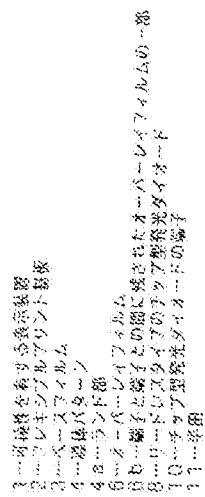 1…可撓性を有する表示装置
2…フレキシブルプリント基板
3…ベースフィルム
4…導体パターン
4a…ランド部
6…オーバーレイフィルム
6b…端子と端子との間に残されたオーバーレイフィルムの一部
9…リードレスタイプのチップ型発光ダイオード
10…チップ型発光ダイオードの端子
11…半田